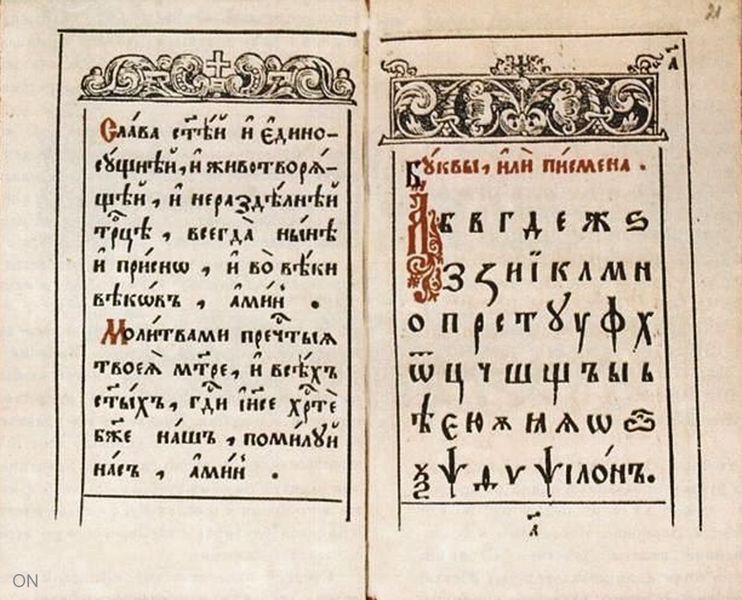 Сла́ва ст҃ѣ́й и҆ є҆дино-
сꙋ́щнѣй, и҆ животворѧ́-
щѣй, и҆ нераздѣ́лнѣй
трⷪ҇цѣ, всегда̀ ны́нѣ
и҆ при́снѡ, и҆ во̀ вѣ́ки
вѣкѡ́въ, а҆ми́нь.
Моли́твами пречⷭ҇тыѧ
твоеѧ̀ мт҃ре, и҆ всѣ́хъ
ст҃ы́хъ, гдⷭ҇и і҆и҃се хрⷭ҇тѐ
бж҃е на́шъ, поми́лꙋй
на́съ, а҆ми́нь.
21
а҃
Бꙋ́квы, и҆лѝ пи́смена.
А Б В Г Д Е Ж Ѕ
З Ꙁ И Ї К Л М Н
О П Р С Т Ꙋ У Ф Х
Ѿ Ц Ч Ш Щ Ъ Ы Ь
Ѣ Є Ю Ѫ Ꙗ Ѧ Ѡ Ѽ
Ѯ Ѱ Ѳ Ѵ ѱїло́нъ.
а҃
ON